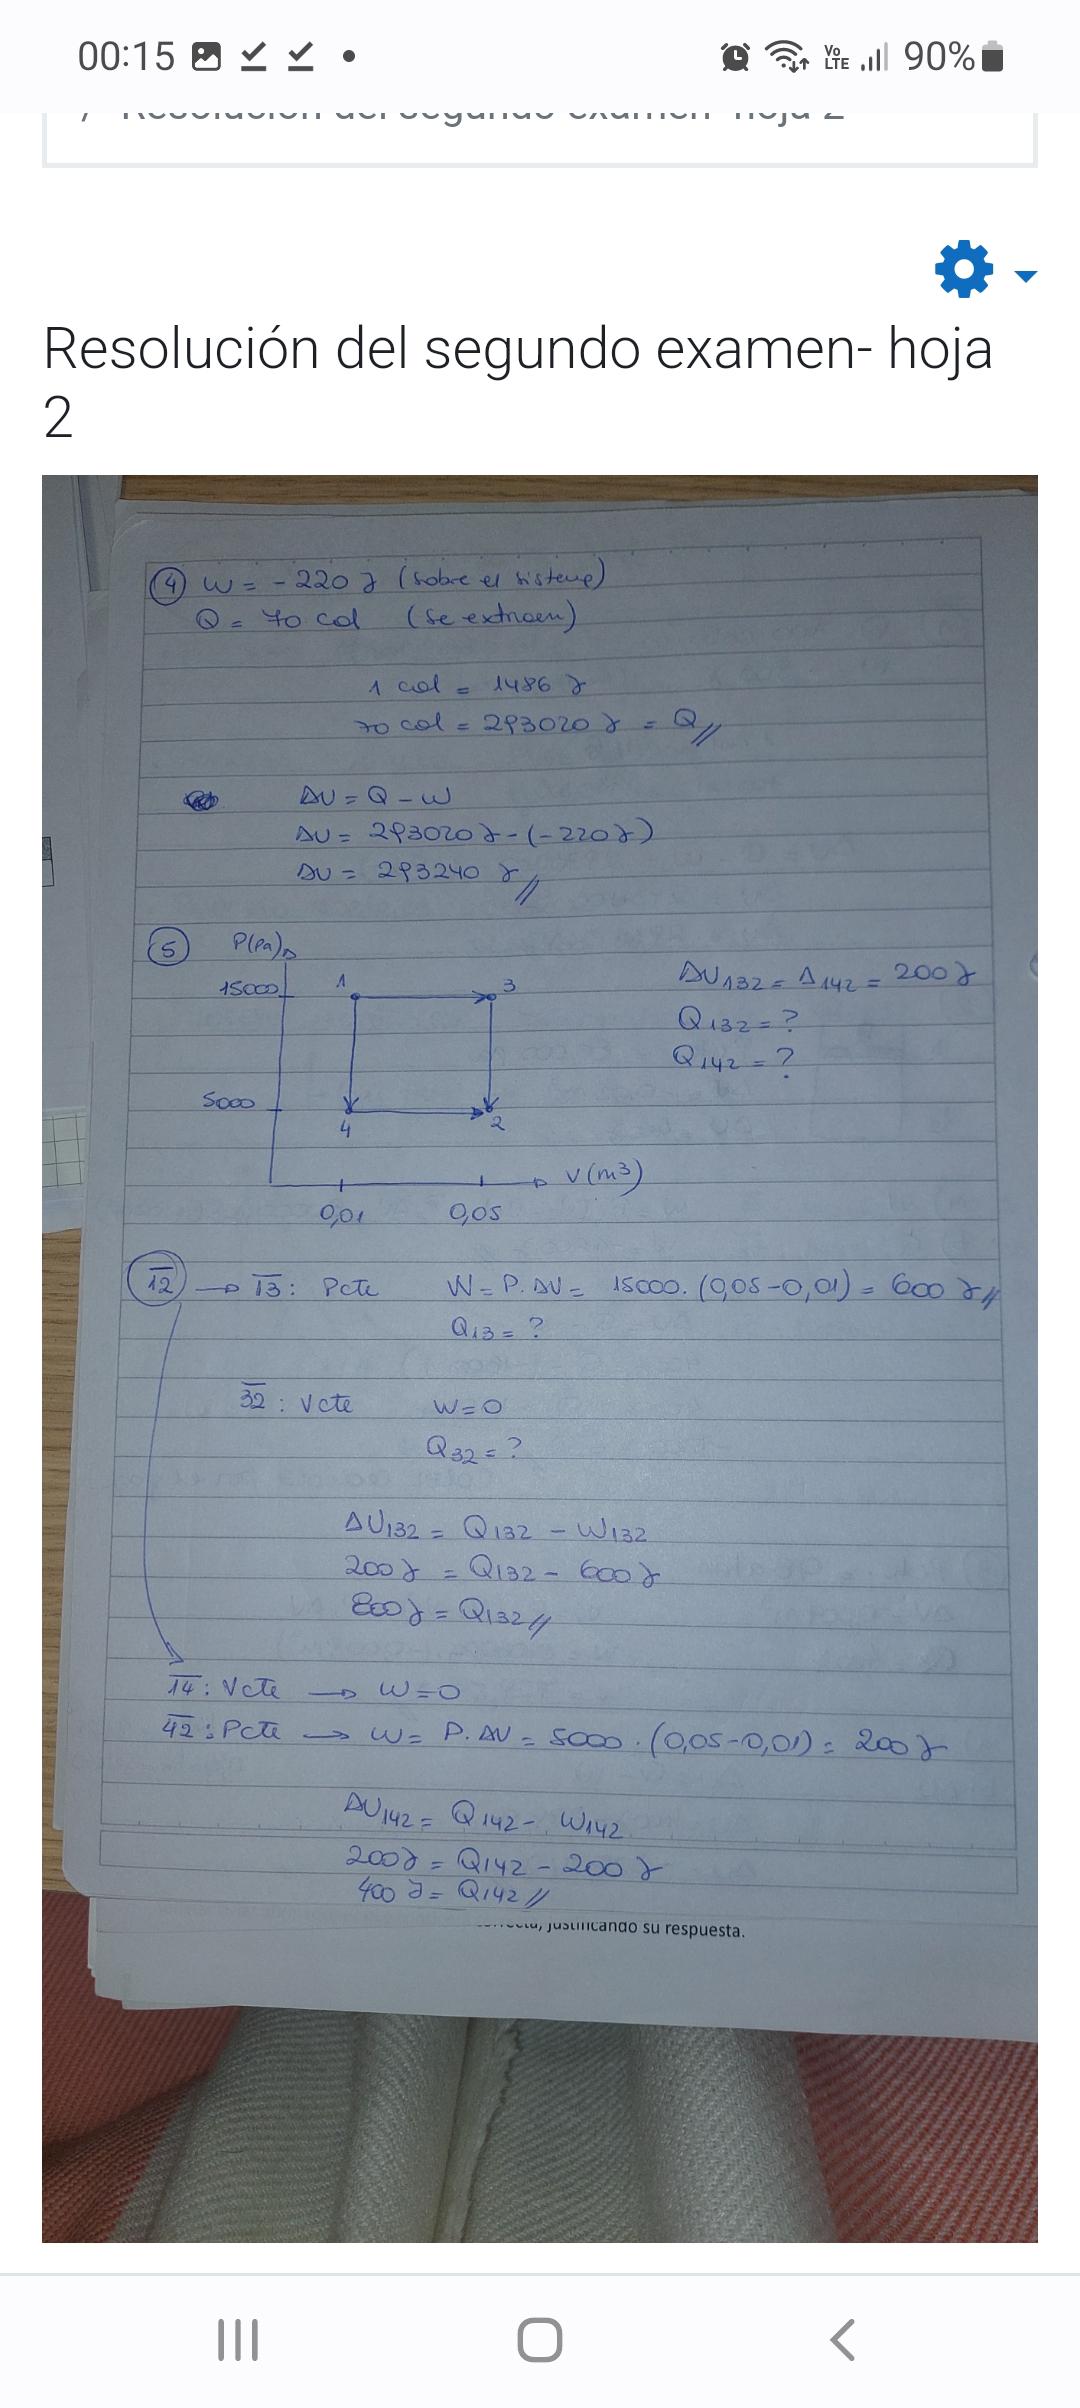 00:15
Vo
LTE
90%
/ Resolución del segundo examen- hoja 2
Resolución del segundo examen- hoja
2
④ W = - 220 J (sobre el sistema)
Q = 70 cal (se extraen)
1 cal = 4186 J
70 cal = 293020 J = Q//
ΔU = Q - W
ΔU = 293020 J - (-220 J)
ΔU = 293240 J//
⑤ P(Pa)
15000
1
3
5000
4
2
V (m³)
0,01
0,05
ΔU132 = Δ142 = 200 J
Q132 = ?
Q142 = ?
12 → 13 : Pcte W = P. ΔV = 15000. (0,05-0,01) = 600 J//
Q13 = ?
32 : Vcte W=0
Q32 = ?
ΔU132 = Q132 - W132
200 J = Q132 - 600 J
800 J = Q132//
14 : Vcte → W=0
42 : Pcte → W = P. ΔV = 5000 . (0,05-0,01) = 200 J
ΔU142 = Q142 - W142
200 J = Q142 - 200 J
400 J = Q142//
justificando su respuesta.